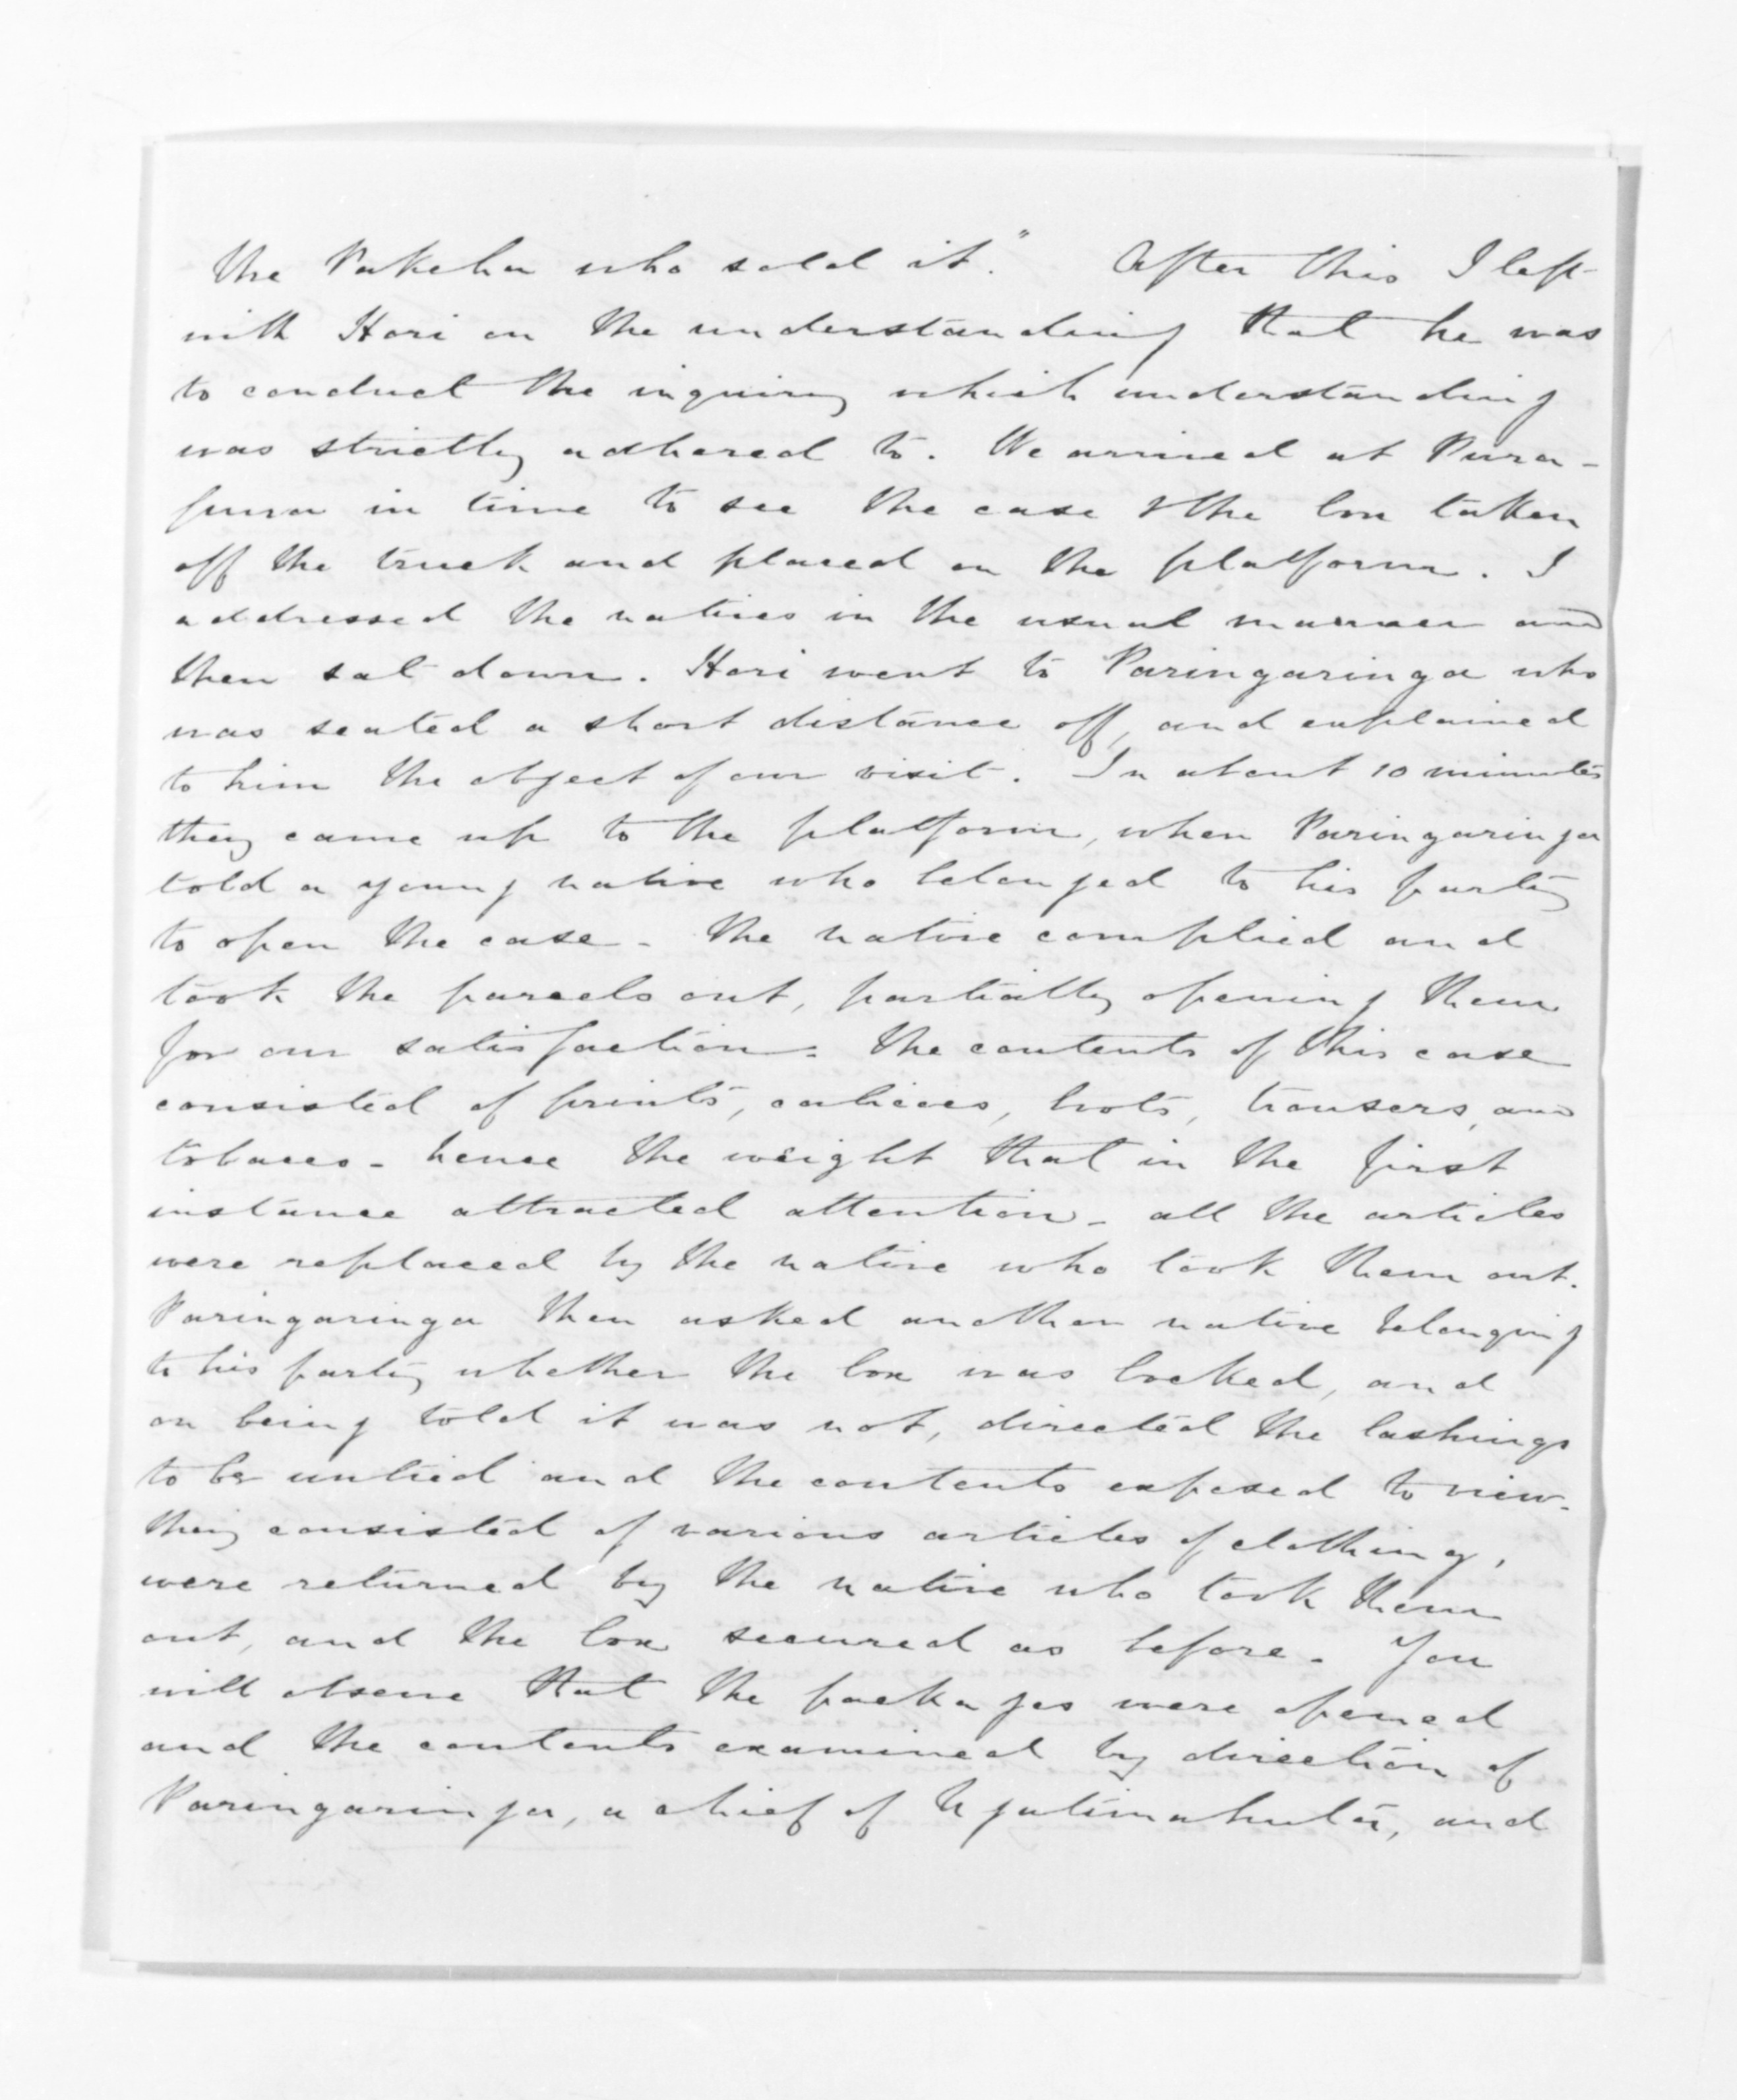 the Pakeha who sold it." After this I left
with Hori on the understanding that he was
to conduct the inquiry which understanding
was strictly adhered to. We arrived at Pura-
pura in time to see the case & the box taken
off the truck and placed on the platform. I
addressed the natives in the usual manner and
then sat down. Hori went to Paringaringa who
was seated a short distance off, and explained
to him the object of our visit. In about 10 minutes
they came up to the platform, when Paringaringa
told a young native who belonged to his party
to open the case - the native complied and
took the parcels out, partially opening them
for our satisfaction - the contents of this case
consisted of prints, calicoes, boots, trousers, and
tobacco - hence the weight that in the first
instance attracted attention - all the articles
were replaced by the native who took them out.
Paringaringa then asked another native belonging
to his party whether the box was locked, and
on being told it was not, directed the lashings
to be untied and the contents exposed to view -
they consisted of various articles of clothing,
were returned by the native who took them
out, and the box secured as before - You
will observe that the packages were opened
and the contents examined by direction of
Paringaringa, a chief of Ngatimahuta, and